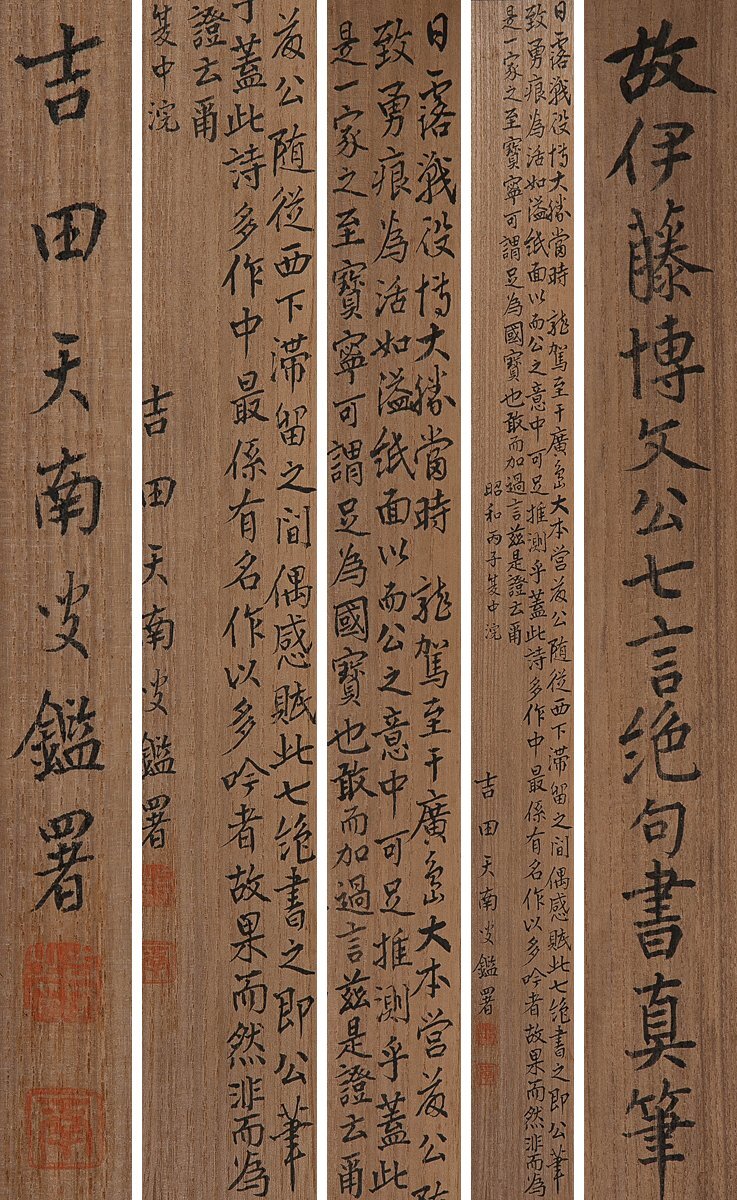 故伊藤博文公七言絶句書真筆
日露戦役博大勝當時 龍駕至于廣島大本営為公随従西下滞留之間偶感賦此七絶書之即公筆
致勇痕為活如溢紙面以而公之意中可足推測乎蓋此詩多作中最係有名作以多吟者故果而然非而為
是一家之至寶寧可謂足為國寶也敢而加過言茲是證云爾
昭和丙子夏中浣
吉田天南叟鑑署
日露戦役博大勝當時 龍駕至于廣島大本営為公随
致勇痕為活如溢紙面以而公之意中可足推測乎蓋此
是一家之至寶寧可謂足為國寶也敢而加過言茲是證云爾
為公随従西下滞留之間偶感賦此七絶書之即公筆
于蓋此詩多作中最係有名作以多吟者故果而然非而為
證云爾
夏中浣
吉田天南叟鑑署
吉田天南叟鑑署